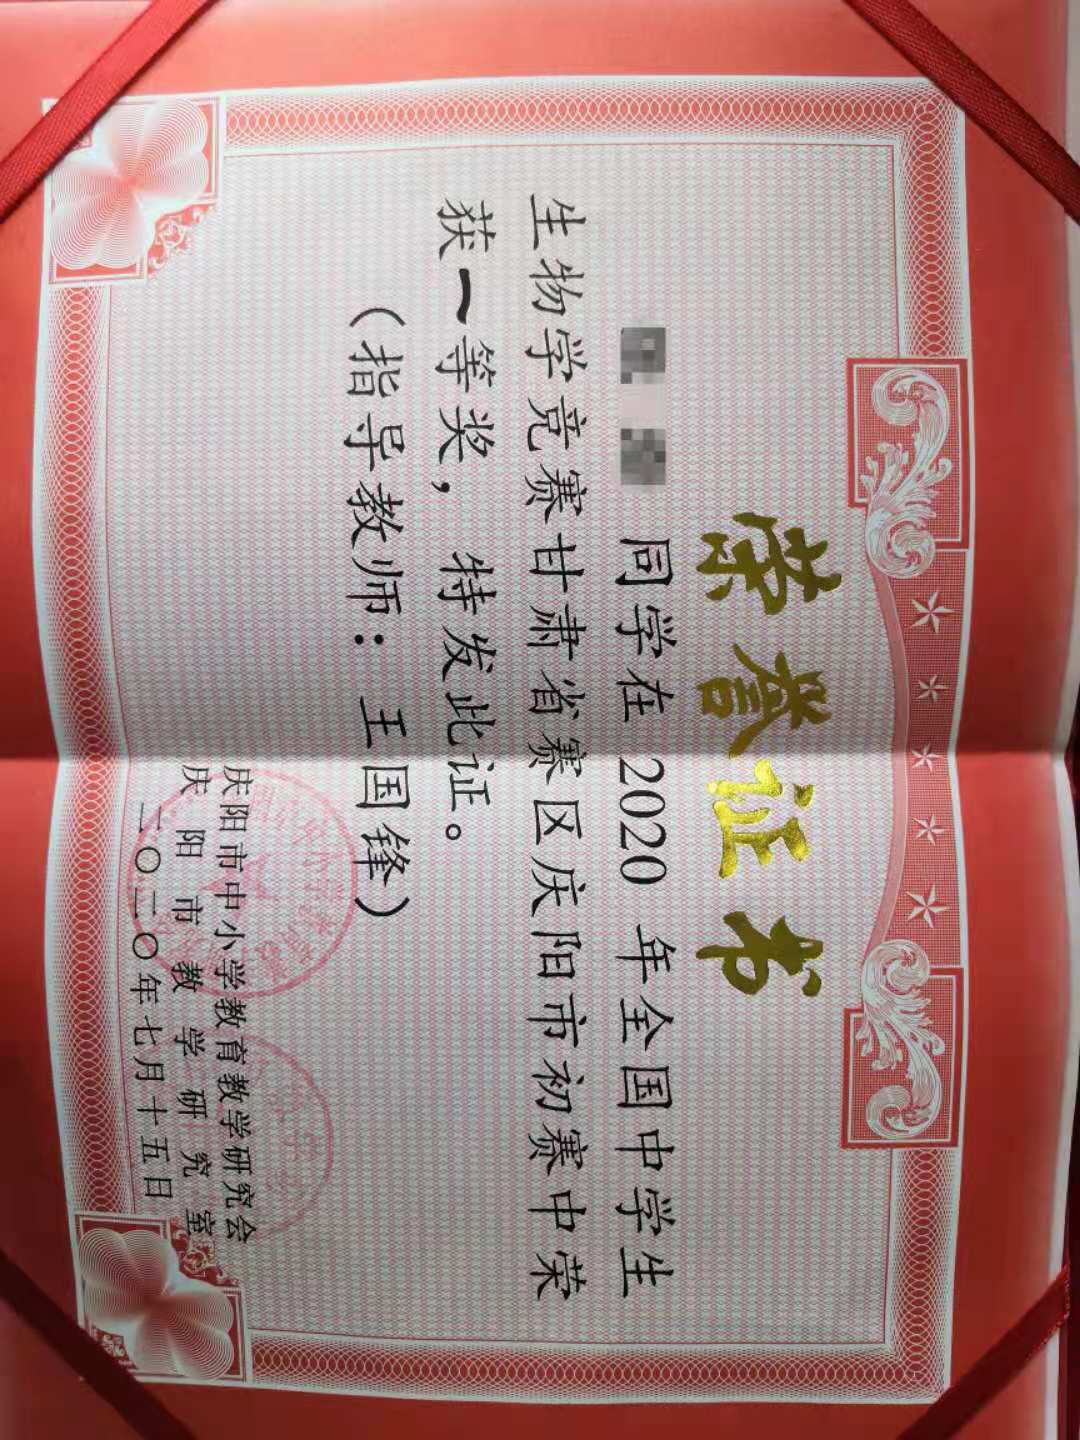 荣誉证书
同学在 2020 年全国中学生
生物学竞赛甘肃省赛区庆阳市初赛中荣
获一等奖，特发此证。
（指导教师：王国锋）
庆阳市中小学教育教学研究会
庆阳市教学研究室
二〇二〇年七月十五日